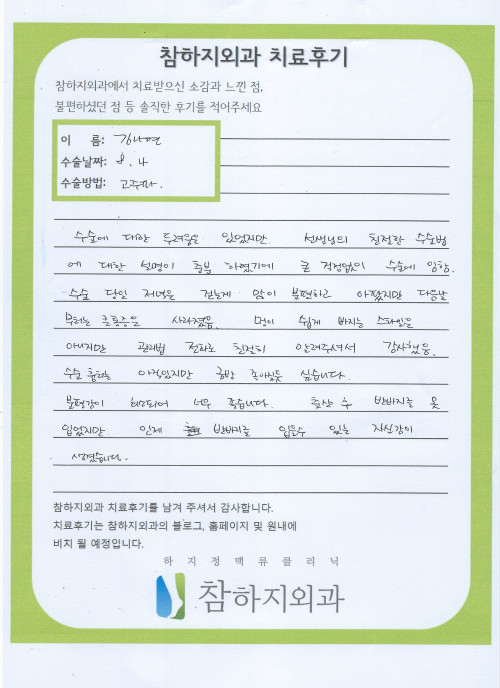 참하지외과 치료후기
참하지외과에서 치료받으신 소감과 느낀 점,
불편하셨던 점 등 솔직한 후기를 적어주세요
이 름: 김나연
수술날짜: 8. 4
수술방법: 고주파.
수술에 대한 두려움은 있었지만. 선생님의 친절한 수술법
에 대한 설명이 충분 하였기에 큰 걱정없이 수술에 임함.
수술 당일 저녁은 걷는게 많이 불편하고 아팠지만 다음날
부터는 큰통증은 사라졌음. 멍이 쉽게 빠지는 스타일은
아니지만 관리법 전화로 친절히 알려주셔서 감사했음.
수술 흉터는 아직있지만 금방 좋아질듯 싶습니다.
불편감이 해소되어 너무 좋습니다. 출산 후 반바지를 못
입었지만 인제 반바지를 입을수 있는 자신감이
생겼습니다.
참하지외과 치료후기를 남겨 주셔서 감사합니다.
치료후기는 참하지외과의 블로그, 홈페이지 및 원내에
비치 될 예정입니다.
하지정맥류클리닉
참하지외과